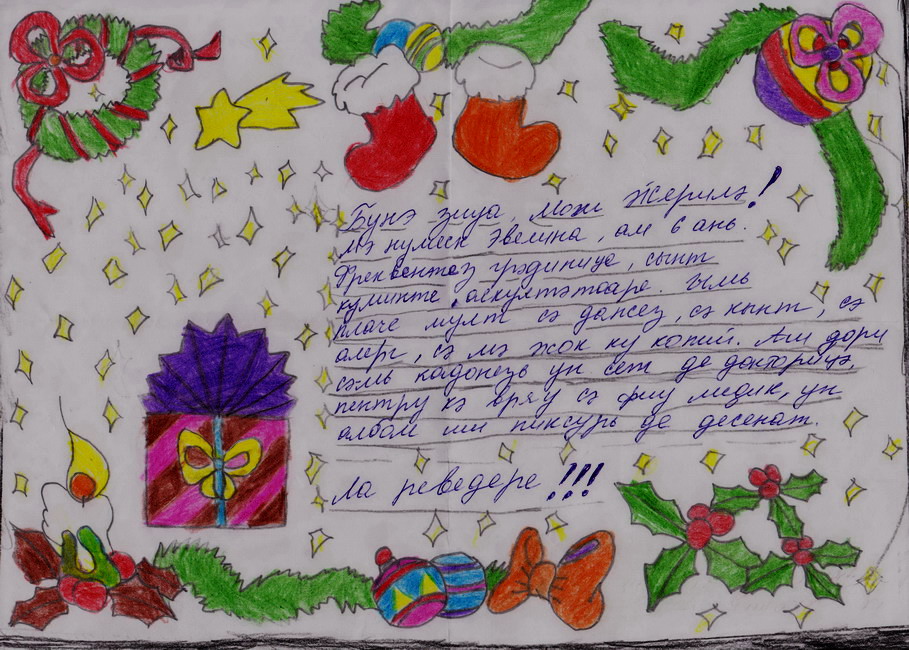 Бунэ зиуа, Мош Жерилэ!
Мэ нумеск Эвелина, ам 6 ань.
Фреквентез грэдиница, сынт
куминте, аскултэтоаре. Ымь
плаче мулт сэ дансез, сэ кынт, сэ
алерг, сэ мэ жок ку копий. Аш дори
сэмь кадонезь ун сет де докторицэ,
пентру кэ вряу сэ фиу медик, ун
албом ши пиксурь де десенат.
Ла реведере!!!